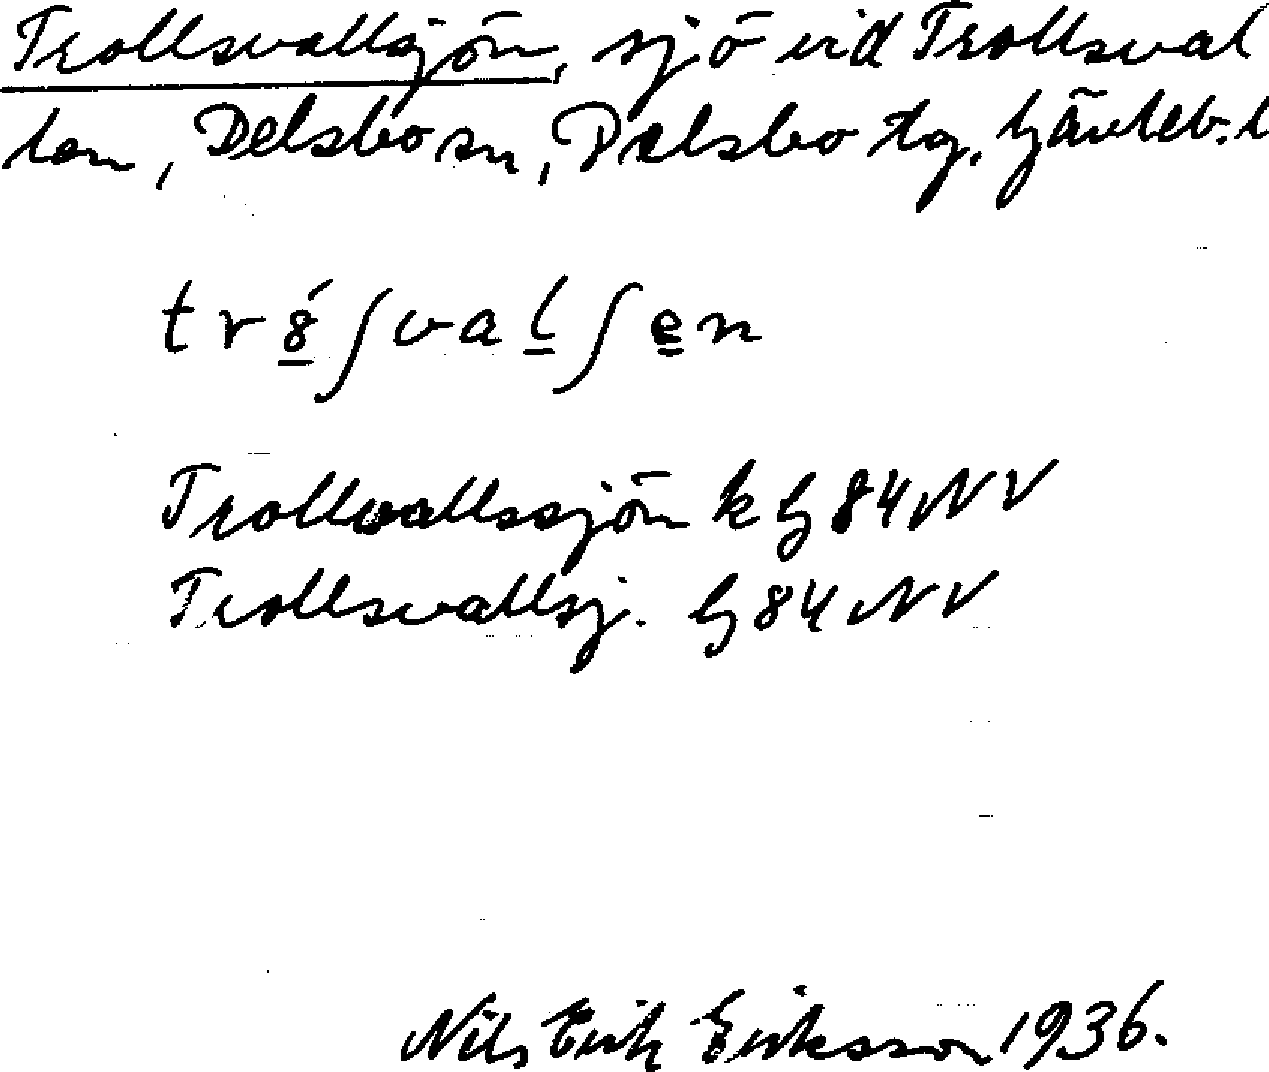 Trollsvallsjön, sjö vid Trollsval
len, Delsbo sn, Delsbo tg. Gävleb. l
tr8́ʃvalʃen
Trollvallssjön k G 84 NV
Trollsvallsj. G 84 NV
Nils Erik Eriksson 1936.